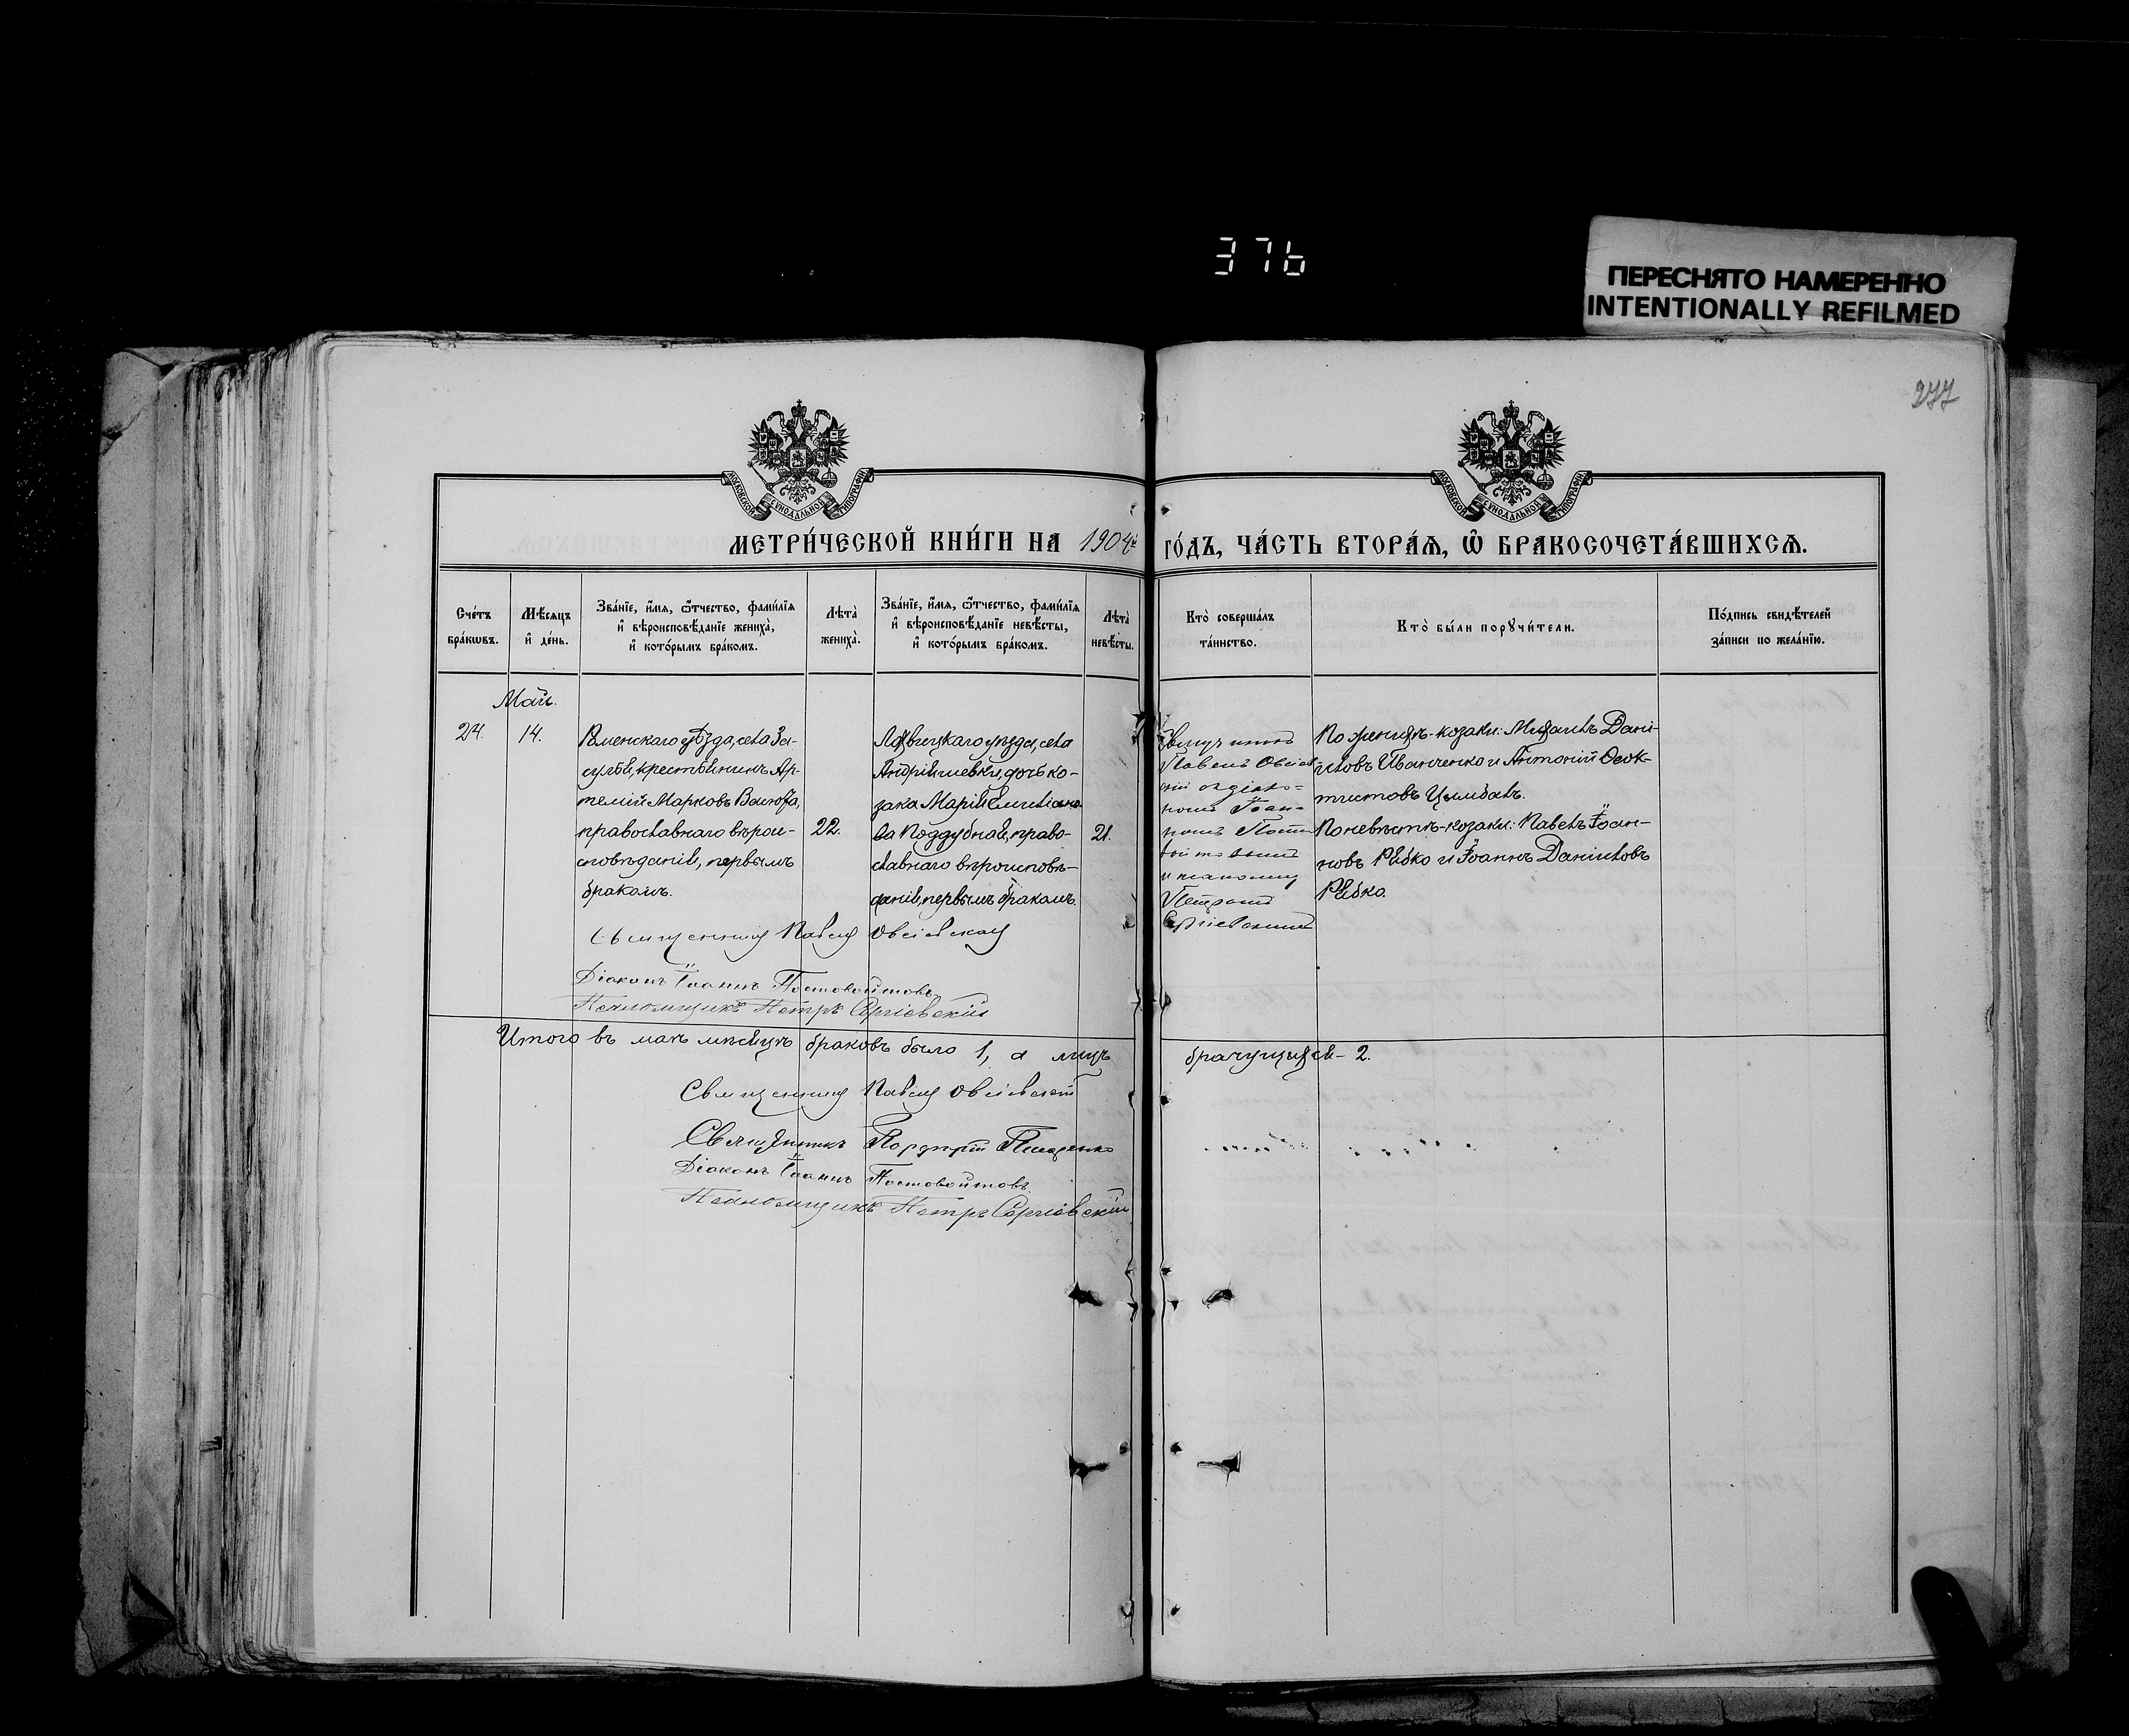 376
ПЕРЕСНЯТО НАМЕРЕННО
INTENTIONALLY REFILMED
277
МОСКОВСКОЙ СУНОДАЛЬНОЙ ТИПОГРАФІИ
МОСКОВСКОЙ СУНОДАЛЬНОЙ ТИПОГРАФІИ
МЕТРИ́ЧЕСКОЙ КНИ́ГИ НА 1904й ГО́ДЪ, ЧА́СТЬ ВТОРА́Ѧ, Ѽ БРАКОСОЧЕТА́ВШИХСѦ.
Сче́тъ
бра́кѡвъ.
Мѣ́сѧцъ
и҆ де́нь.
Зва́нїе, и҆́мѧ, ѻ҆́тчество, фами́лїѧ
и҆ вѣроисповѣ́данїе жениха̀,
и҆ кото́рымъ бра́комъ.
Лѣта̀
жениха̀.
Зва́нїе, и҆́мѧ, ѻ҆́тчество, фами́лїѧ
и҆ вѣроисповѣ́данїе невѣ́сты,
и҆ кото́рымъ бра́комъ.
Лѣта̀
невѣ́сты.
Кто̀ соверша́лъ
та́инство.
Кто̀ бы́ли порꙋчи́тели.
По́дпись свидѣ́телей
за́писи по жела́нїю.
Май.
24.
14.
Роменскаго уѣзда, села За-
сулья, крестьянинъ Ар-
темій Марковъ
православнаго вѣрои-
сповѣданія, первымъ
бракомъ.
22.
Лохвицкаго уѣзда, села
Андріяшевки, дочь ко-
зака Марія Емиліано-
ва Поддубная, право-
славнаго вѣроисповѣ-
данія, первымъ бракомъ.
21.
Павелъ
съ діако-
номъ Іоан-
номъ
и псаломщ
Петромъ
Сергіевскимъ
По женихѣ-козаки: Михаилъ Дані-
иловъ Иванченко и Антоній Ѳеок-
тистовъ Цымбалъ.
По невѣстѣ-козаки: Павелъ Іоан-
новъ Рябко и Іоаннъ Даніиловъ
Рябко.
Священникъ Павелъ Овсіевскій
Діаконъ Іоаннъ Постовойтовъ
Псаломщикъ Петръ Сергіевскій
Итого въ маѣ мѣсяцѣ браковъ было 1, а лицъ брачущихся – 2.
Священникъ Павелъ Овсіевскій
Священникъ Порфирій Пищенко
Діаконъ Іоаннъ Постовойтовъ
Псаломщикъ Петръ Сергіевскій